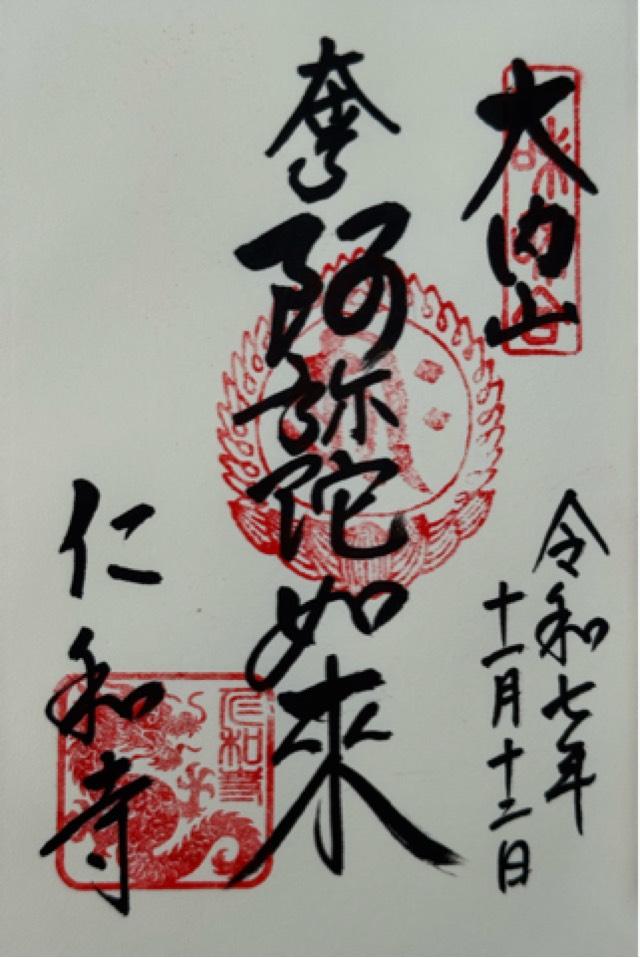 大内山
令和七年
十一月十二日
阿弥陀如來
仁和寺
仁和寺